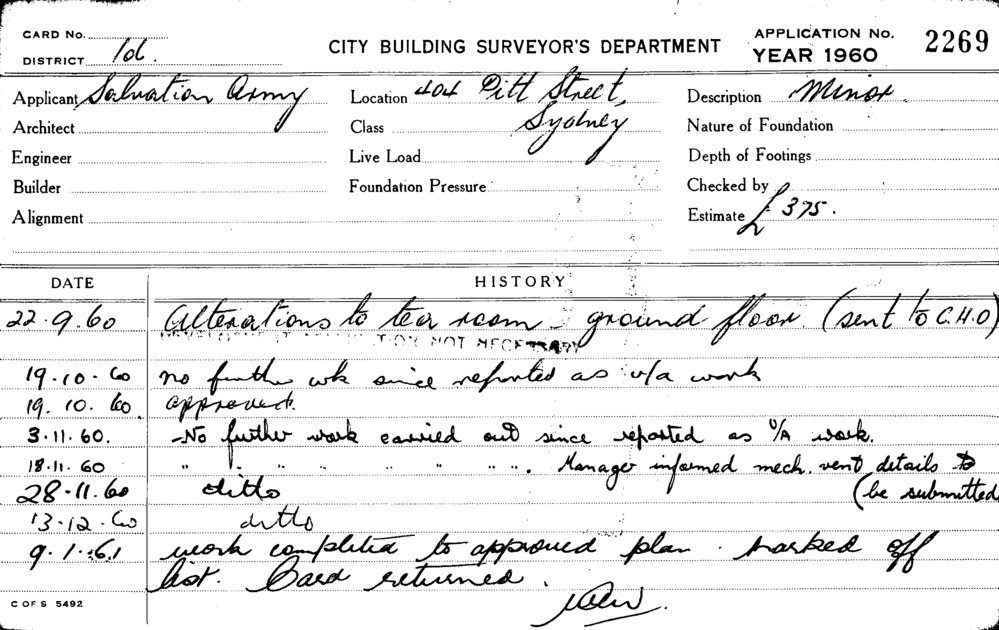 CARD No.
DISTRICT 1d.
CITY BUILDING SURVEYOR'S DEPARTMENT
APPLICATION No. 2269
YEAR 1960
Applicant Salvation Army
Location 404 Pitt Street,
Sydney
Description Minor.
Architect
Class
Nature of Foundation
Engineer
Live Load
Depth of Footings
Builder
Foundation Pressure
Checked by
Alignment
Estimate £375.
DATE HISTORY
22.9.60 Alterations to tea room - ground floor. (sent to C.H.O)
NOT NECESSARY
19.10.60 no further wk since reported as u/a work
19.10.60 approved.
3.11.60. -No further work carried out since reported as U/A work.
18.11.60 " " " " " " " ". Manager informed mech. vent details to
(be submitted
28.11.60 ditto
13.12.60 ditto
9.1.61 work completed to approved plan. marked off
list. Card returned.
C OF S 5492